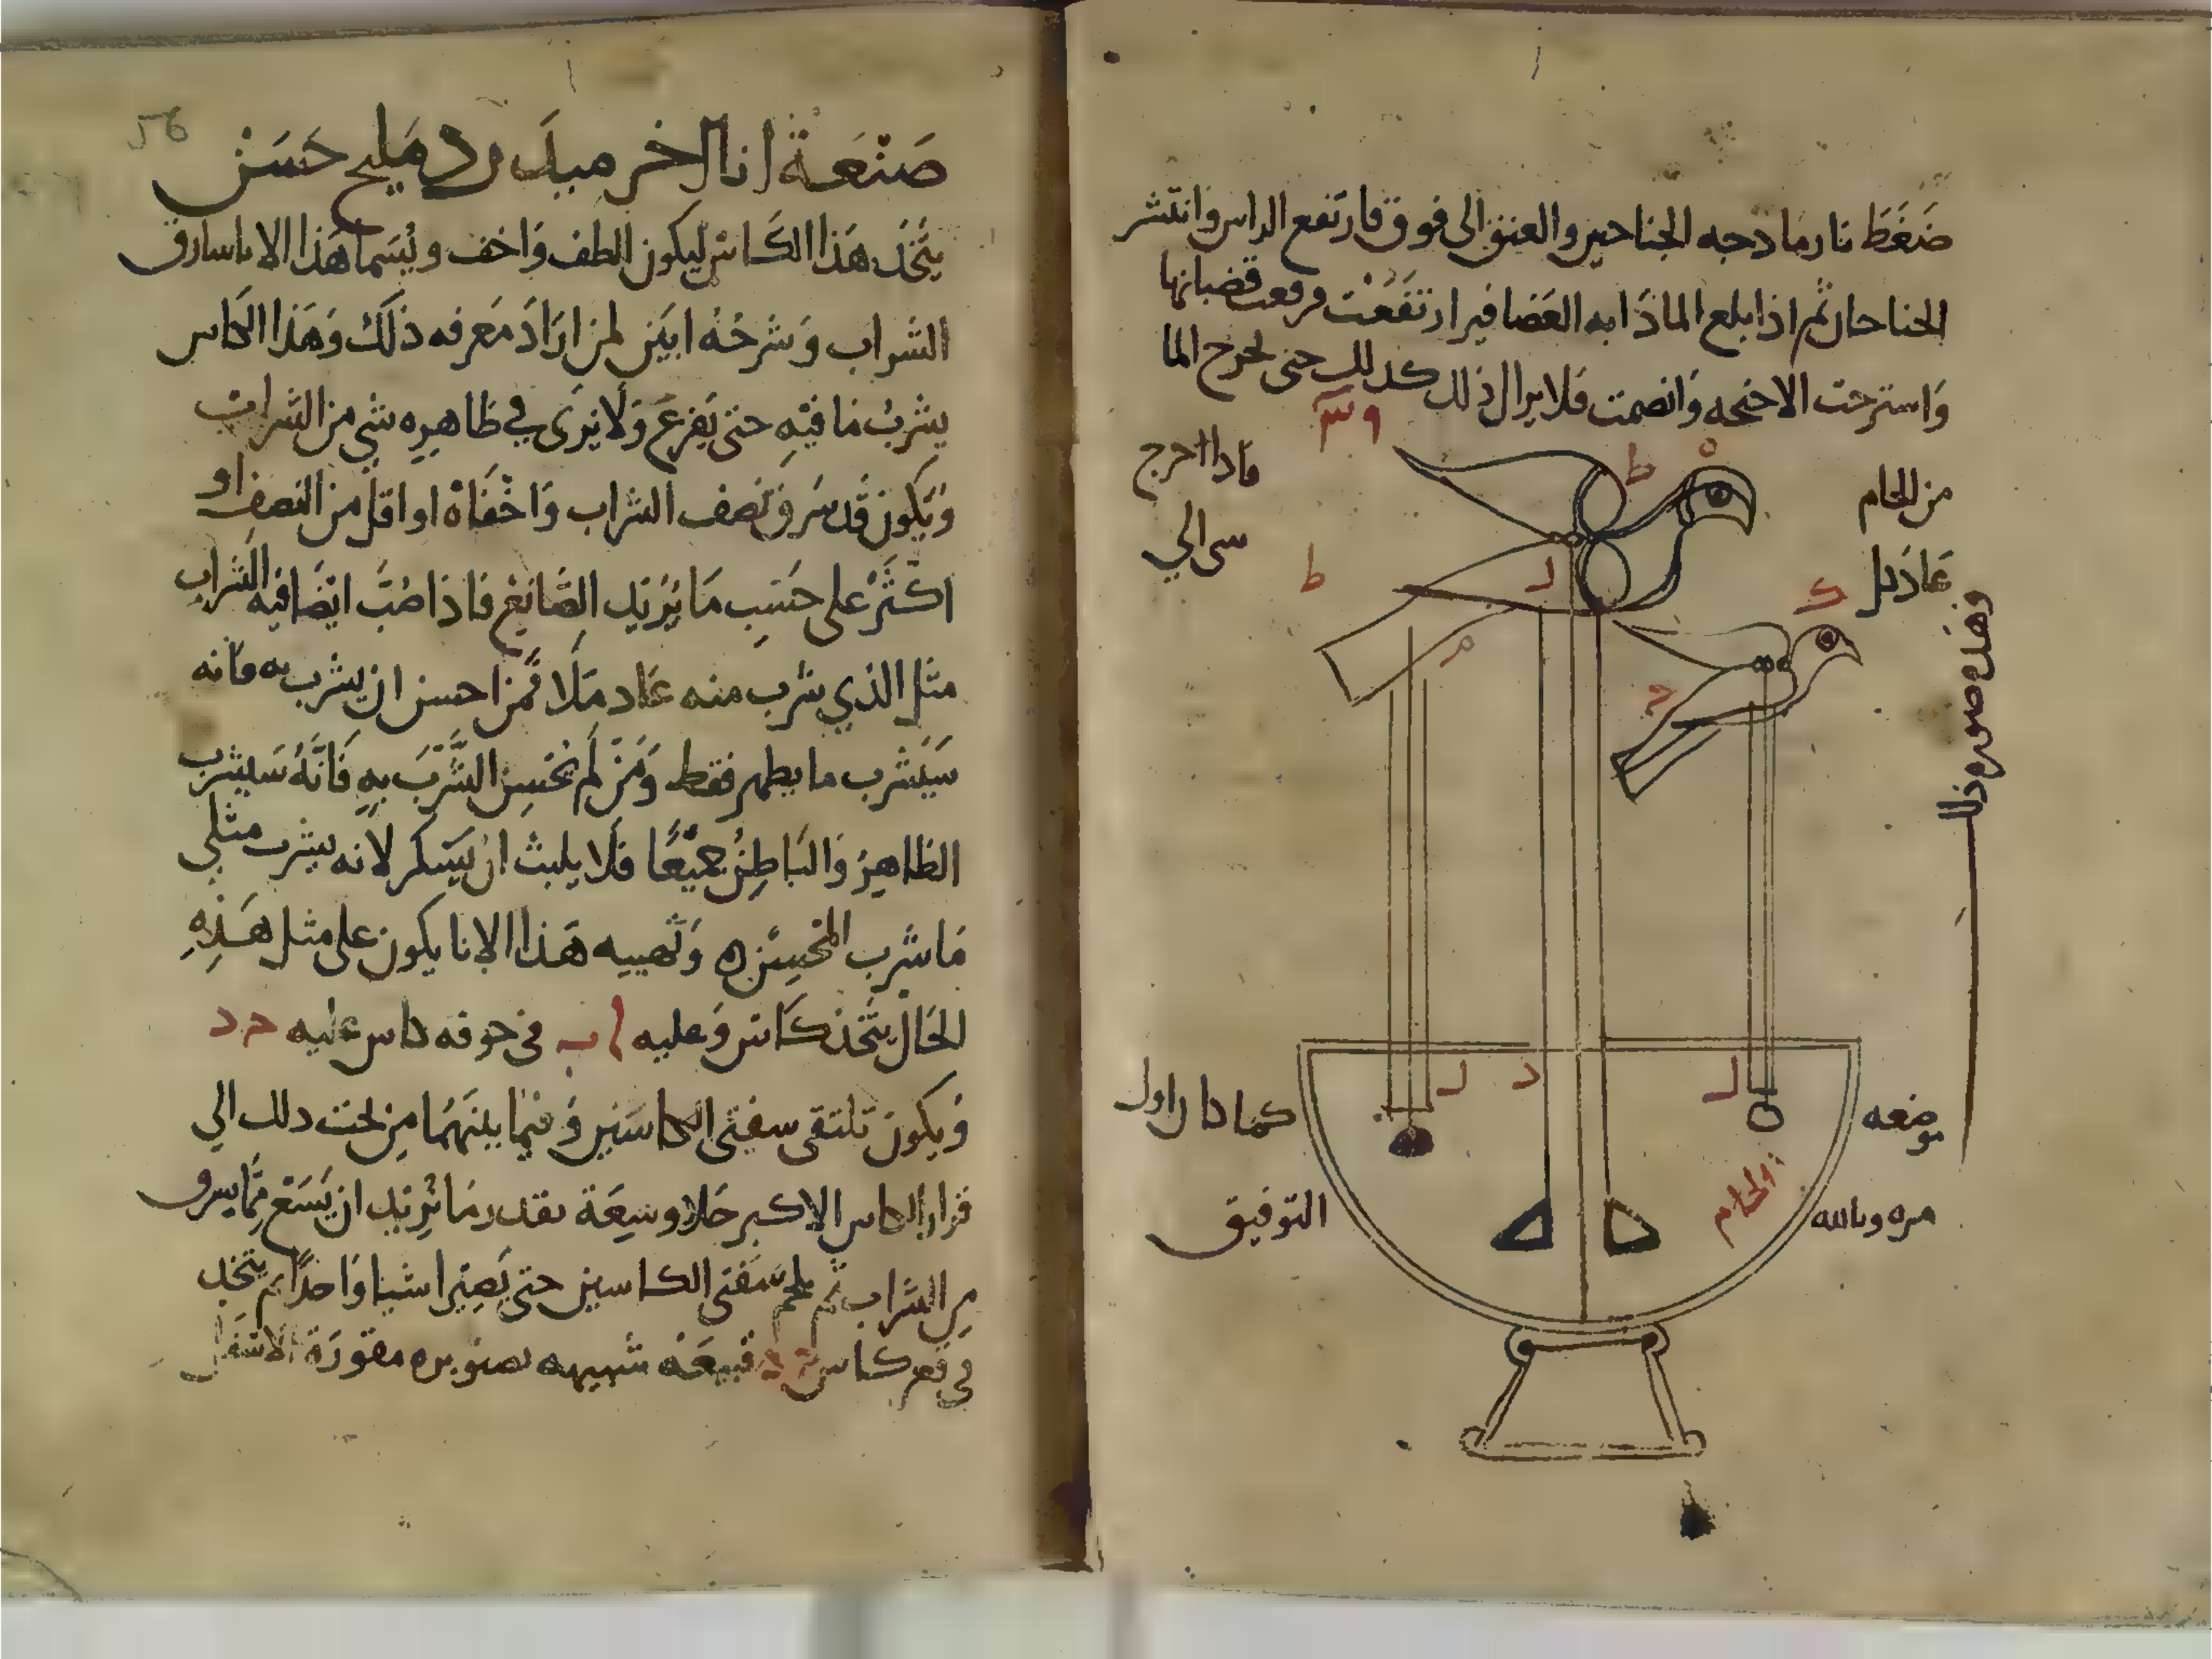 ضغط نار مادجه الجناحين والعنق الى فوق فارتفع الراس وانتشر
الجناحان ثم اذا بلع الماذابه العضافير ارتفعت قضبانها
واسترخت الاجنحه وانضمت فلا يزال ذلك كذلك حتى يخرج الما
من الجام
فاذا اخرج
عاد كل
سى الي
وهذه صوره ذلك
موضعه
كما دا را ول
مره وبالله
التوفيق
الجام
ط
ه
ط
ك
م
ل
د
ل
56
صنعة انا اخر مبدل رد مليح حسن
يتخذ هذا الكاس ليكون الطف واخف ويسما هذا الانا سارق
الشراب وشرحه ابين لمن اراد معرفه ذلك وهذا الكاس
يشرب ما فيه حتى يفرغ ولا يرى في ظاهره شي من الشراب
ويكون قد سرق نصف الشراب واخفاه او اقل من النصف او
اكثر على حسب ما يريد الصانع فاذا صب ايضا فيه الشراب
مثل الذي شرب منه عاد ملا فمن احسن ان يشرب به فانه
سيشرب ما يظهر فقط ومن لم يحسن الشرب به فانه سيشرب
الظاهر والباطن جميعا فلا يلبث ان يسكر لانه يشرب مثلي
ما شرب المحسن ه وتهييه هذا الانا يكون على مثل هذه
الحال يتخذ كاس وعليه ا ب في جوفه كاس عليه ح د
ويكون تلتقى سفتى الكاسين وفيما بينهما من تحت ذلك الي
قرار الكاس الاكبر خلا وسعة بقدر ما يريد ان يسع مما يسرق
من الشراب ثم يلحم سفتى الكاسين حتى يصيرا شيا واحدا ثم يتخذ
في قعر كاس ح د قبيعه شبيهه بصنوبره مقورة الاسفل